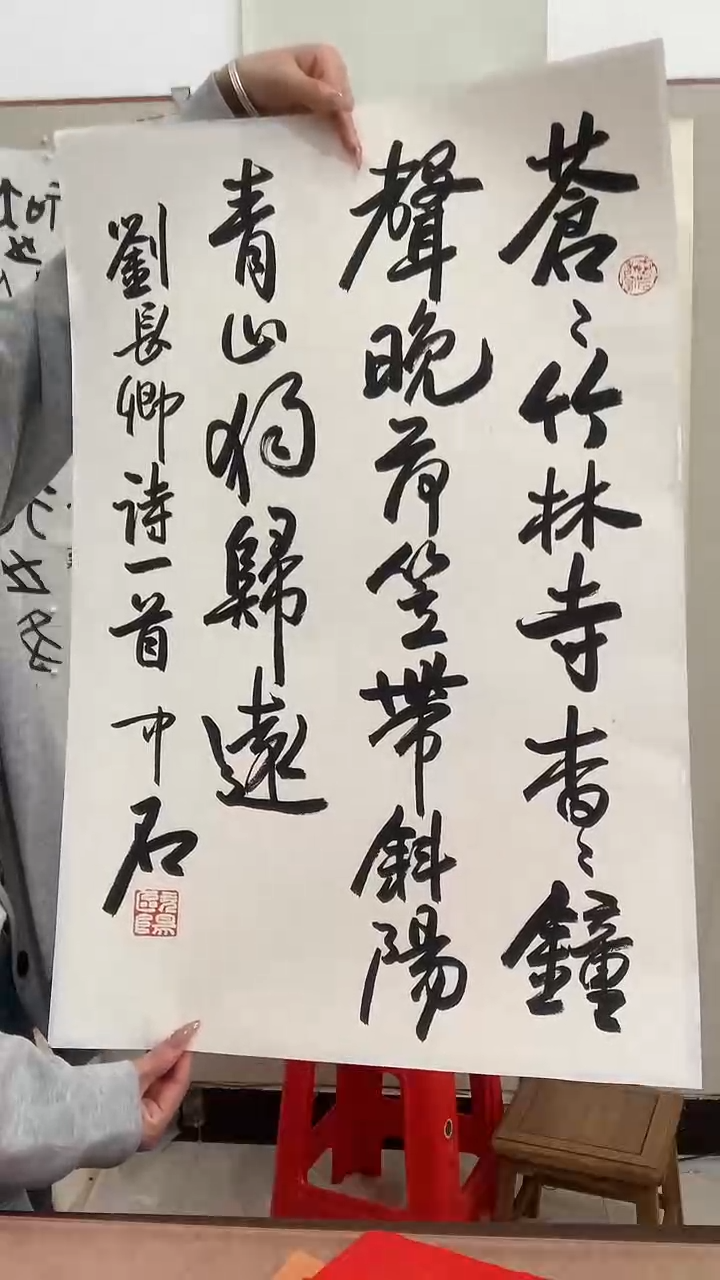 蒼〻竹林寺杳〻鐘
聲晚荷笠帶斜陽
青山獨歸遠
劉長卿詩一首 中石